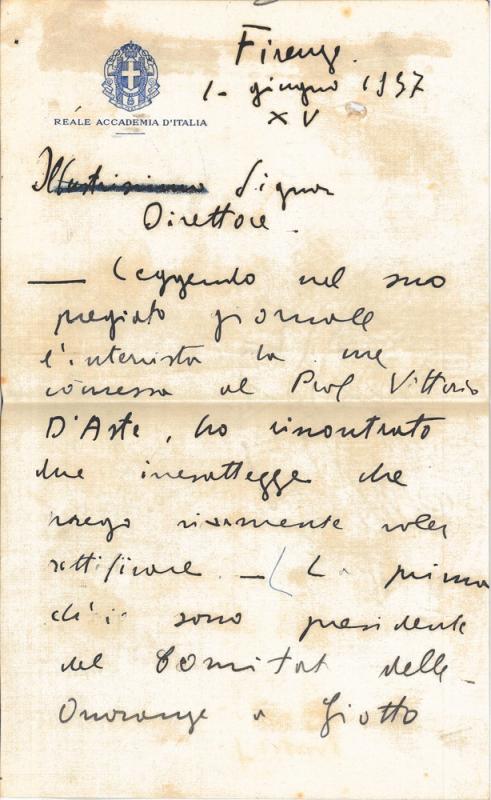 REALE ACCADEMIA D'ITALIA
Firenze
1- giugno 1937
XV
Illustrissimo Signor
Direttore.
— Leggendo nel suo
pregiato giornale
l'intervista da me
concessa al Prof Vittorio
D'Aste, ho riscontrato
due inesattezze che
prego vivamente voler
rettificare. — (La prima
ch'io sono presidente
del Comitato delle
Onoranze a Giotto